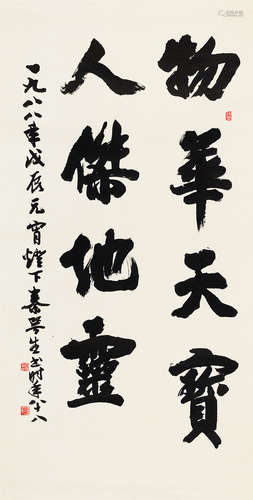 物華天寶
人傑地靈
一九八八年戊辰元宵燈下秦咢生書時年八十八